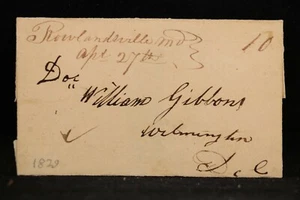 Rowlandsville Md 10
Apl 27th
Doc
William Gibbons
Wilmington
Del
1829